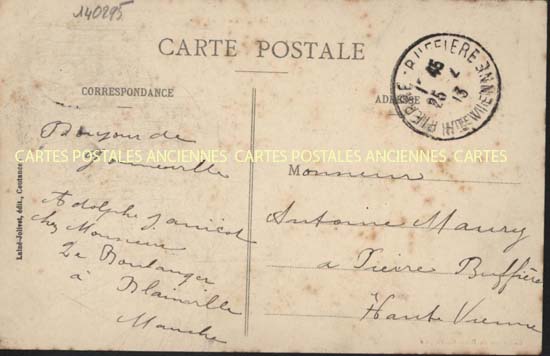 140295
CARTE POSTALE
CORRESPONDANCE
ADRESSE
PIERRE-BUFFIERE
HTE VIENNE
25 - 2
13
Bonjour de
CARTES POSTALES ANCIENNES CARTES POSTALES ANCIENNES CARTES POSTALES ANCIENNES
Adolphe Janicot
chez Monsieur
Le Boulanger
à Blainville
Manche
Monsieur
Antoine Maury
a Pierre Buffière
Haute Vienne
Laisé-Jolivet, édit., Coutances